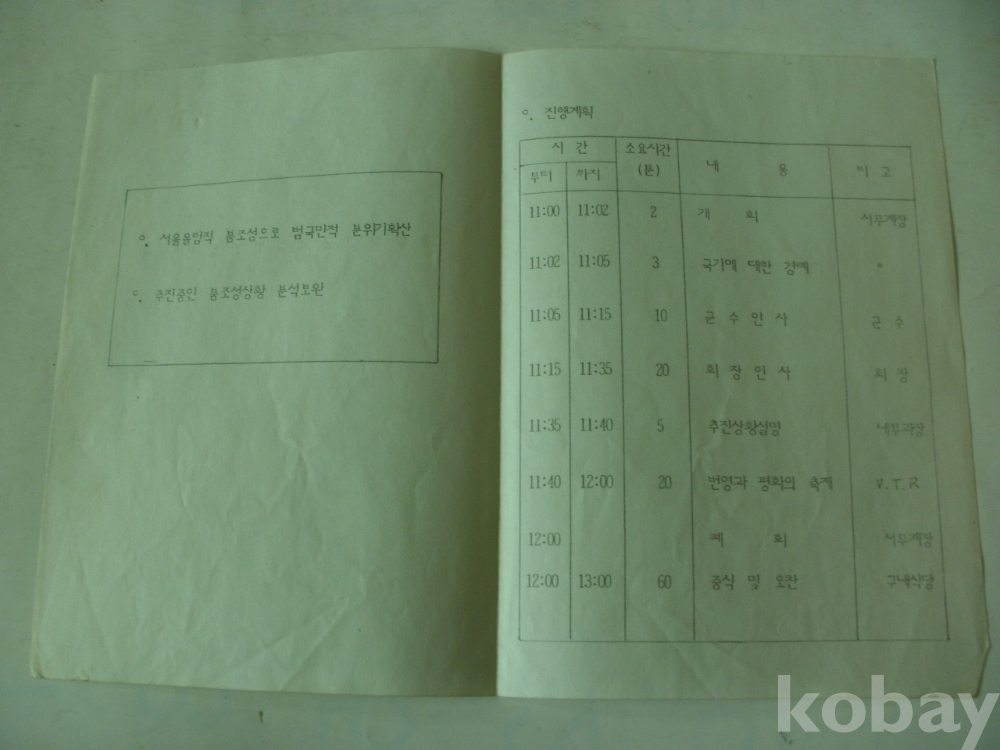 o. 서울올림픽 붐조성으로 범국민적 분위기확산
o. 추진중인 붐조성상황 분석보완
o. 진행계획
시 간 소요시간 (분) 내 용 비 고
부터 까지
11:00 11:02 2 개 회 서무계장
11:02 11:05 3 국기에 대한 경례 "
11:05 11:15 10 군 수 인 사 군 수
11:15 11:35 20 회 장 인 사 회 장
11:35 11:40 5 추진상황설명 내무과장
11:40 12:00 20 번영과 평화의 축제 V.T.R
12:00 폐 회 서무계장
12:00 13:00 60 중식 및 오찬 구내식당
kobay